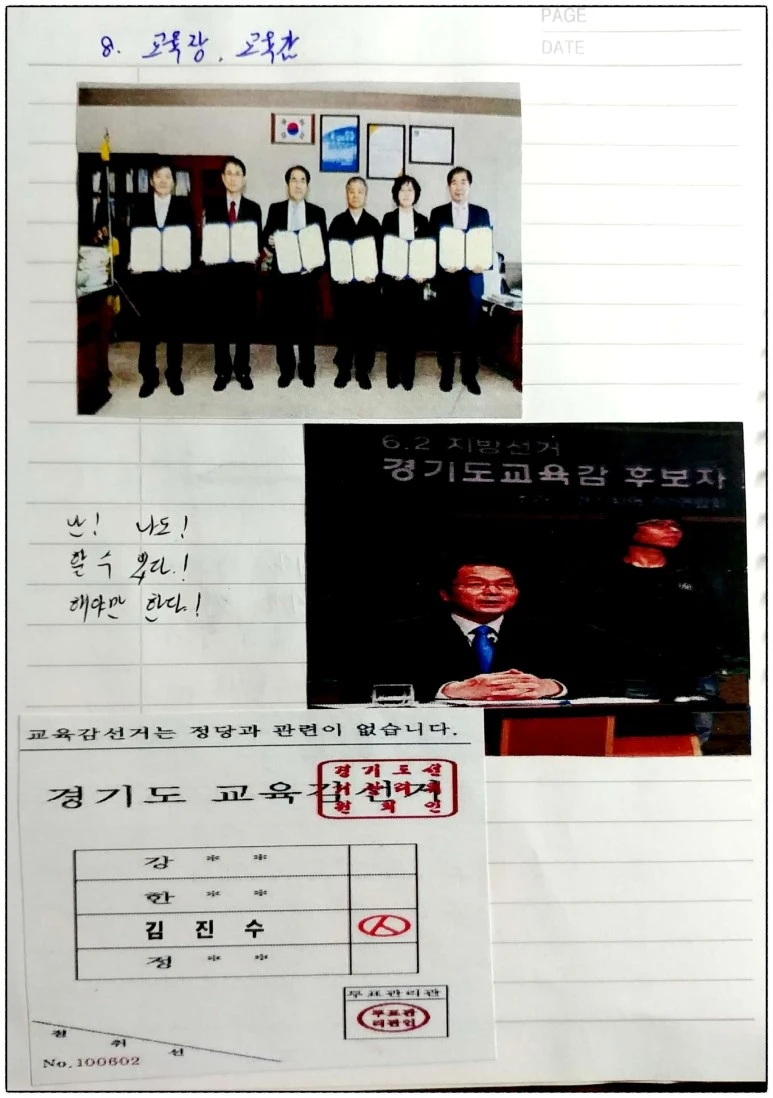 PAGE
DATE
8. 교육장, 교육감
6.2 지방선거
경기도교육감 후보자
난! 나도!
할 수 있다!
해야만 한다!
교육감선거는 정당과 관련이 없습니다.
경기도 교육감선거
경기도선
거관리위
원회인
강 * *
한 * *
김 진 수
정 * *
투표관리관
투표관
리관인
절 취 선
No. 100602